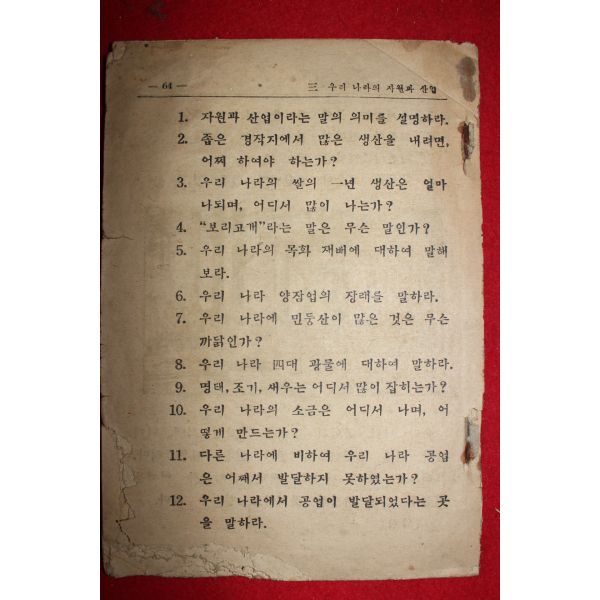 — 64 —
三 우리 나라의 자원과 산업
1. 자원과 산업이라는 말의 의미를 설명하라.
2. 좁은 경작지에서 많은 생산을 내려면,
어찌 하여야 하는가?
3. 우리 나라의 쌀의 一년 생산은 얼마
나되며, 어디서 많이 나는가?
4. “보리고개”라는 말은 무슨 말인가?
5. 우리 나라의 목화 재배에 대하여 말해
보라.
6. 우리 나라 양잠업의 장래를 말하라.
7. 우리 나라에 민둥산이 많은 것은 무슨
까닭인가?
8. 우리 나라 四대 광물에 대하여 말하라.
9. 명태, 조기, 새우는 어디서 많이 잡히는가?
10. 우리 나라의 소금은 어디서 나며, 어
떻게 만드는가?
11. 다른 나라에 비하여 우리 나라 공업
은 어째서 발달하지 못하였는가?
12. 우리 나라에서 공업이 발달되었다는 곳
을 말하라.